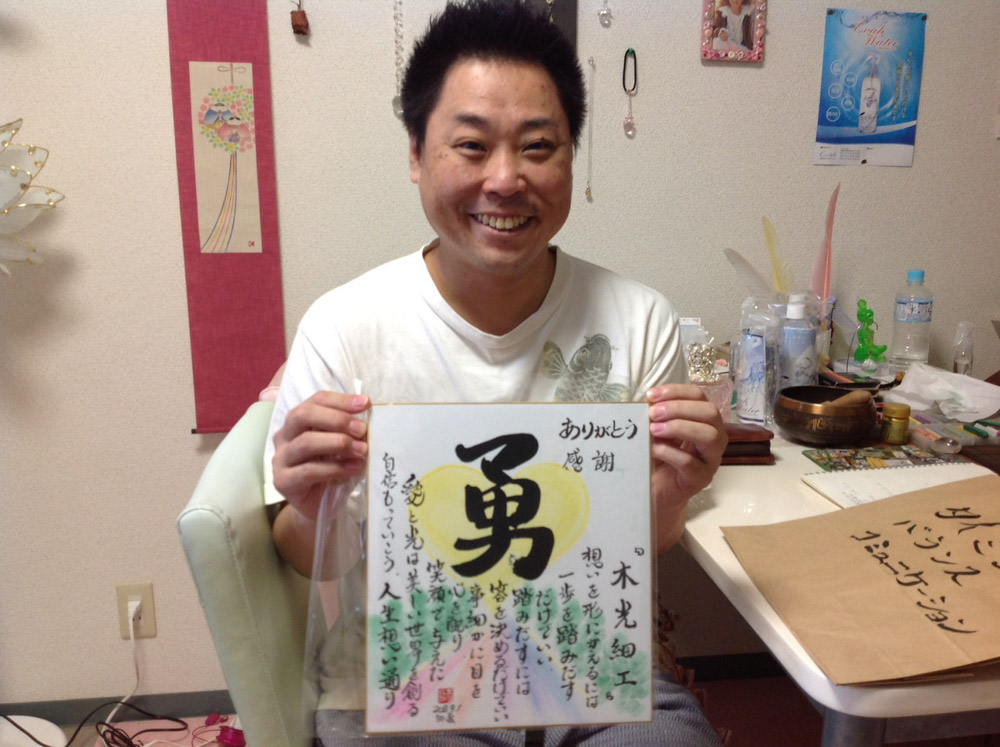 ありがとう
感謝
勇
『木光細工』
想いを形にかえるには
一歩を踏みだす
だけでいい
踏みだすには
を決めるだけでいい
事細かに目を
心を配り
笑顔で与えた
愛と光は美しい世界を創る
自信もっていこう、人生想い通り
バランス
コミュニケーション
Water